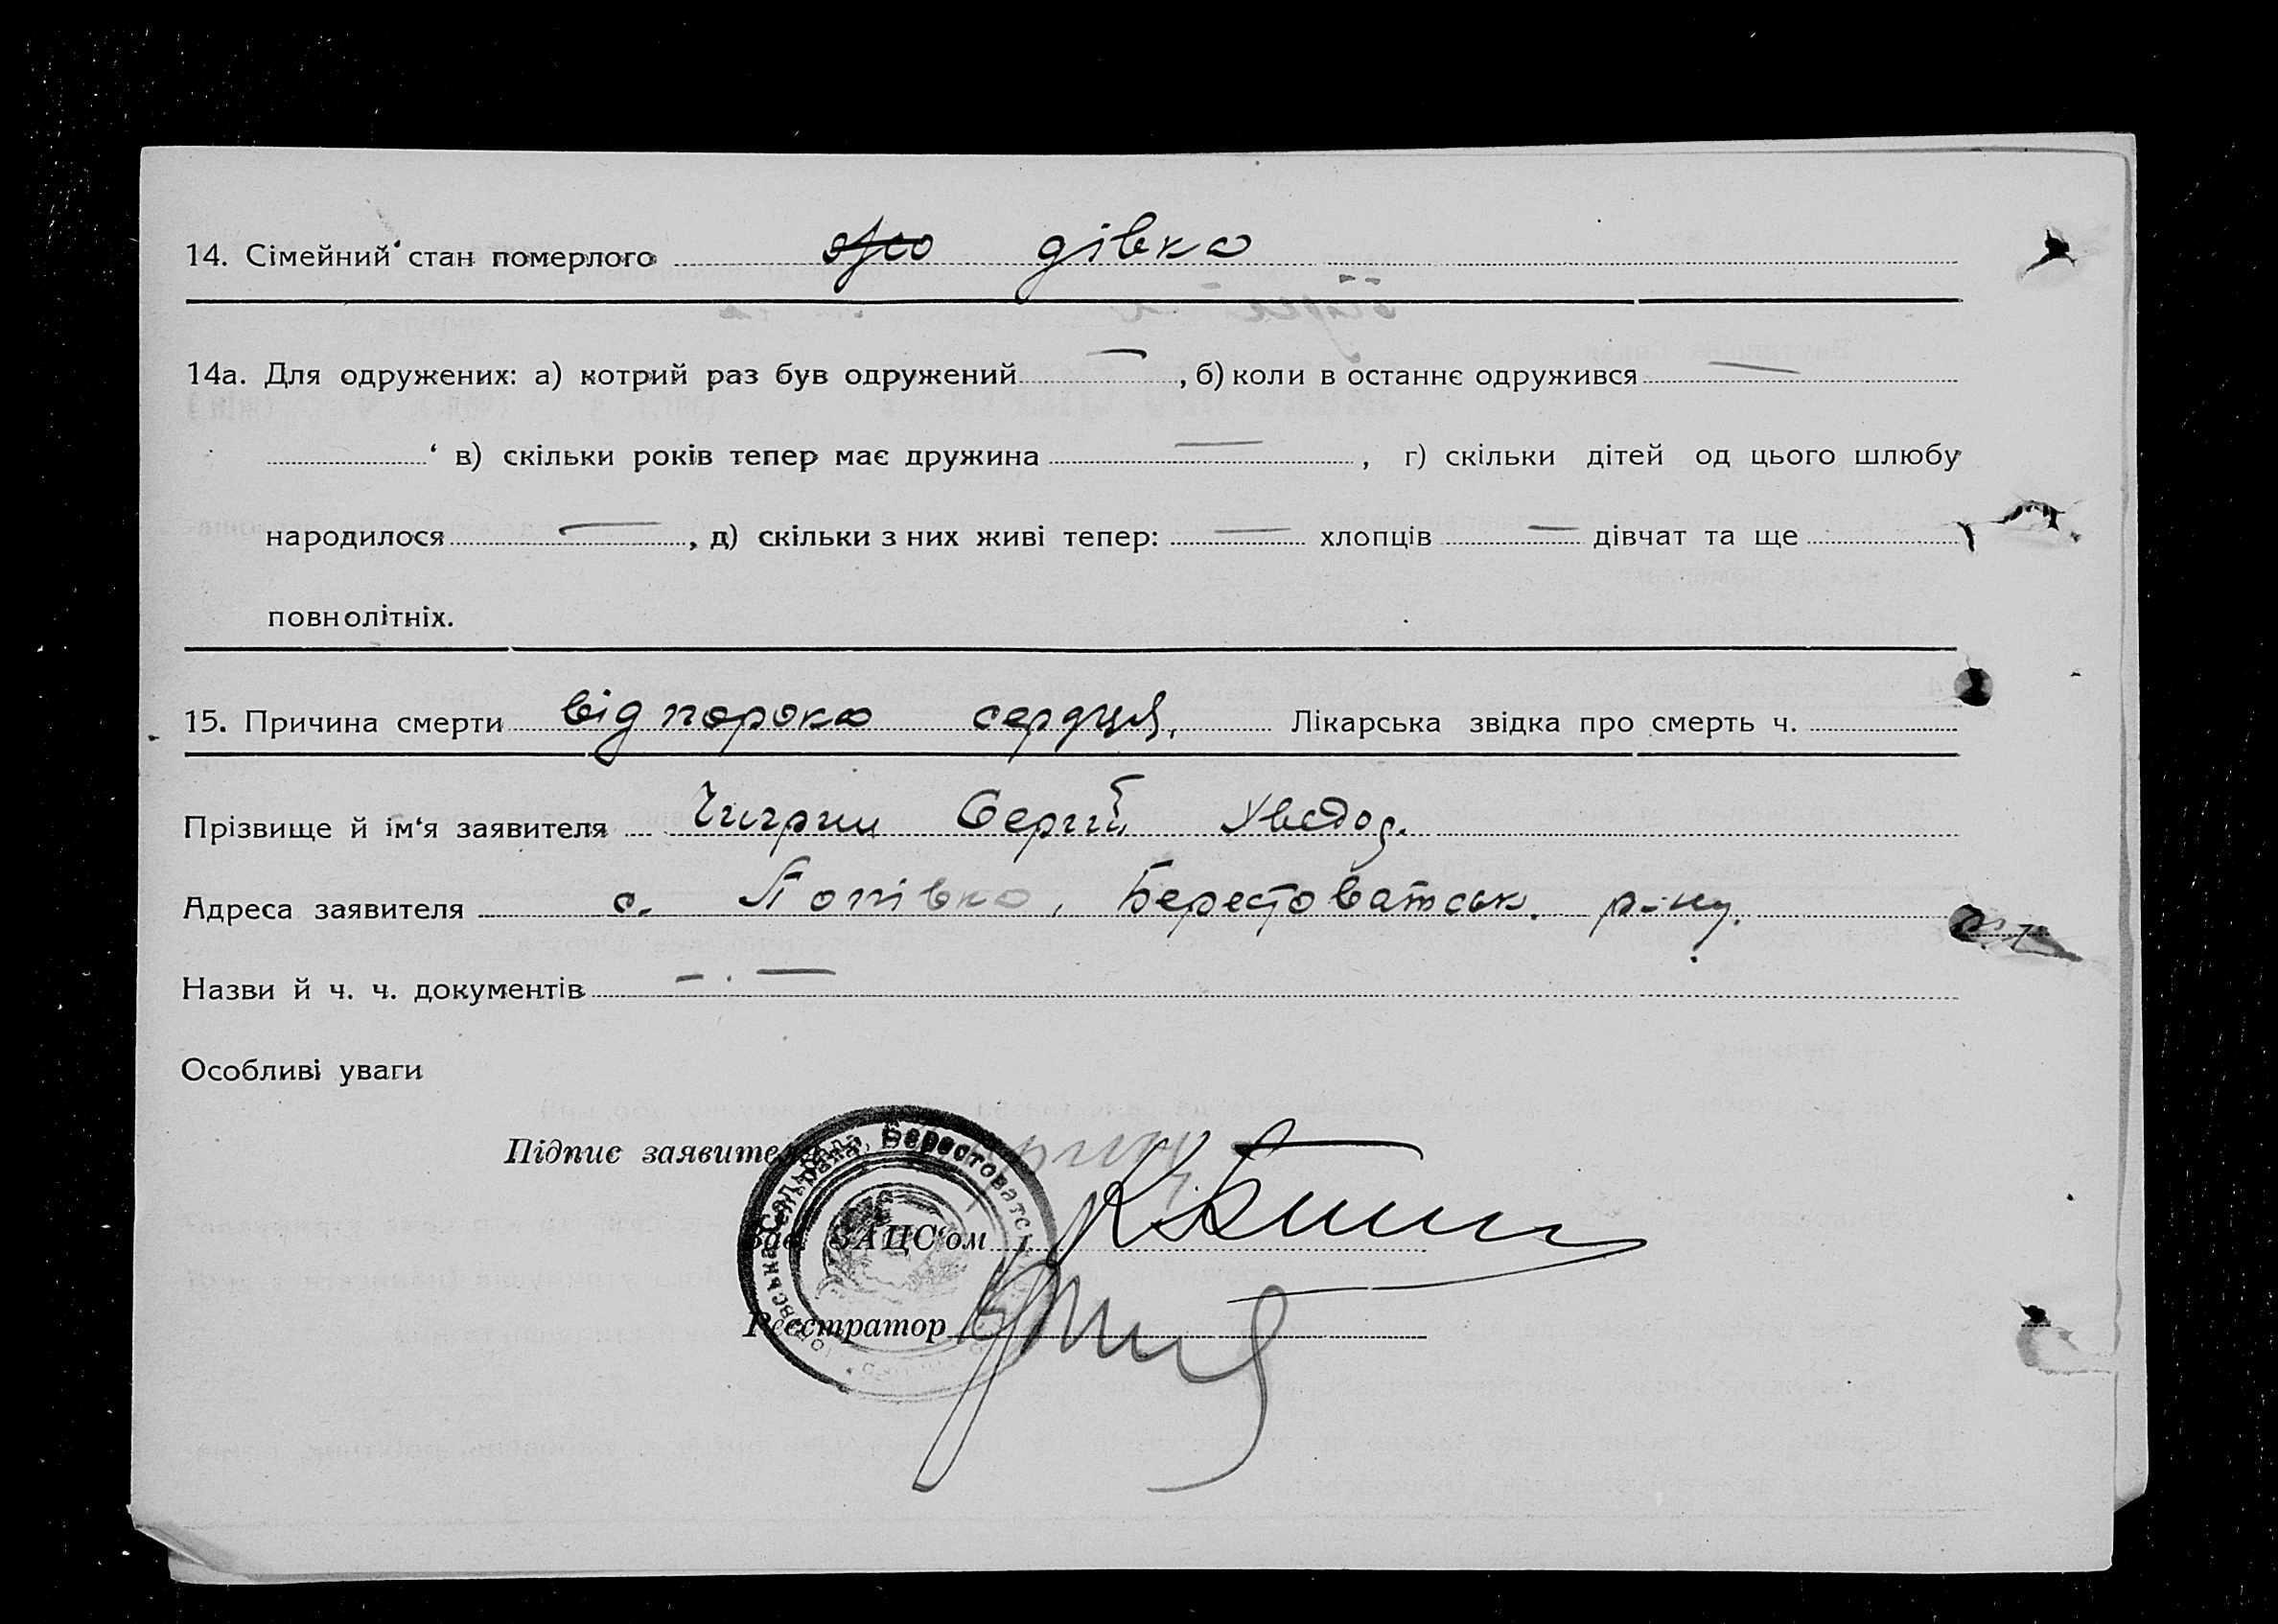 14. Сімейний стан померлого дівка
14а. Для одружених: а) котрий раз був одружений — , б) коли в останнє одружився —
‘ в) скільки років тепер має дружина — , г) скільки дітей од цього шлюбу
народилося — , д) скільки з них живі тепер: — хлопців — дівчат та ще
повнолітніх.
15. Причина смерти від порока сердця, Лікарська звідка про смерть ч.
Прізвище й ім‘я заявителя Чигрин Сергій
Адреса заявителя с. Попівка, Берестоватськ. р-ну.
Назви й ч. ч. документів — . —
Особливі уваги
Підпис заявите
Зав. ЗАЦС‘ом
Реєстратор